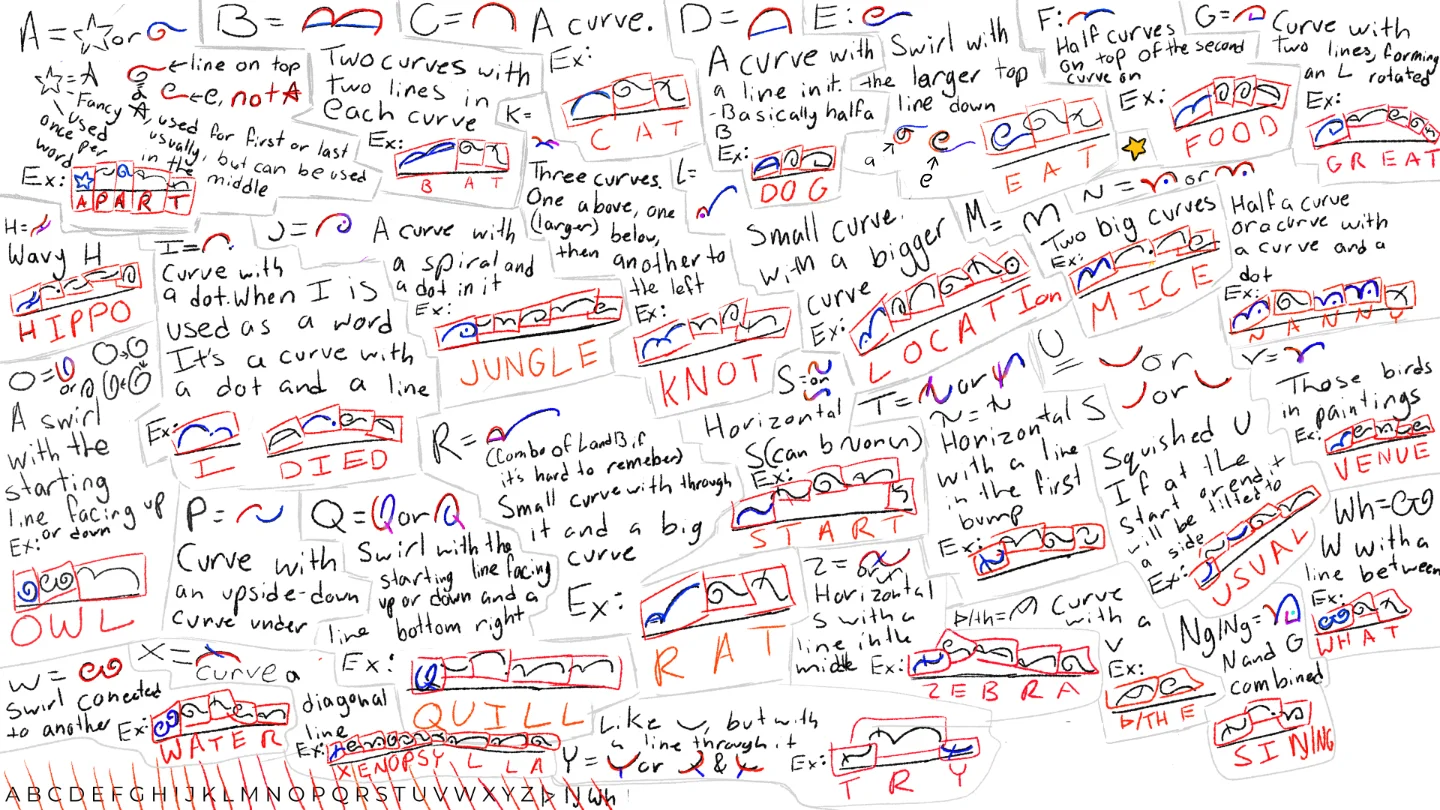 A = or
☆ = A
Fancy
used
once per
word
←line on top
←e, not A
A, used for first or last
usually, but can be used
in the middle
Ex:
A P A R T
B =
Two curves with
Two lines in
each curve
Ex:
B A T
C = A curve.
Ex:
C A T
D =
A curve with
a line in it.
-Basically half a
B
Ex:
DOG
E:
Swirl with
the larger top
line down
a
e
E A T
F:
Half curves
on top of the second
curve on
Ex:
FOOD
G=
Curve with
Two lines, forming
an L rotated
Ex:
G R E A T
H=
Wavy H
HIPPO
I=
Curve with
a dot. When I is
used as a word
It's a curve with
a dot and a line
Ex:
I DIED
J=
A curve with
a spiral and
a dot in it
Ex:
JUNGLE
K=
Three curves.
One above, one
(larger) below,
then another to
the left
Ex:
KNOT
L=
Small curve.
with a bigger
curve
Ex:
LOCATIon
M=
Two big curves
Ex:
MICE
N = or
Half a curve
or a curve with
a curve and a
dot
Ex:
N A N N Y
O= or
A swirl
with the
starting
line facing up
or down
Ex:
OWL
P=
Curve with
an upside-down
curve under
Q= or
Swirl with the
starting line facing
up or down and a
line bottom right
Ex:
QUILL
R=
(Combo of L and B, if
it's hard to remeber)
Small curve with through
it and a big
curve
Ex:
R A T
S= or
Horizontal
S(can b N or n)
Ex:
START
T= or
Horizontal S
with a line
in the first
bump
Ex:
U
or
or
Squished U
If at the
start or end it
will be tilted to
a side
Ex:
USUAL
V=
Those birds
in paintings
Ex:
VENUE
W=
Swirl conected
to another
Ex:
WATER
X=
curve a
diagonal
line
Ex:
XENOPSYLLA
Y= or &
Like ‿, but with
a line through it
Ex:
T R Y
Z= or
Horizontal
S with a
line in the
middle
Ex:
ZEBRA
Þ/th=
Curve
with a
V
Ex:
Þ/TH E
Ng/Ng=
N and G
combined
SINNG
Wh=
W with a
line between
Ex:
WHAT
A B C D E F G H I J K L M N O P Q R S T U V W X Y Z Þ Ng Wh